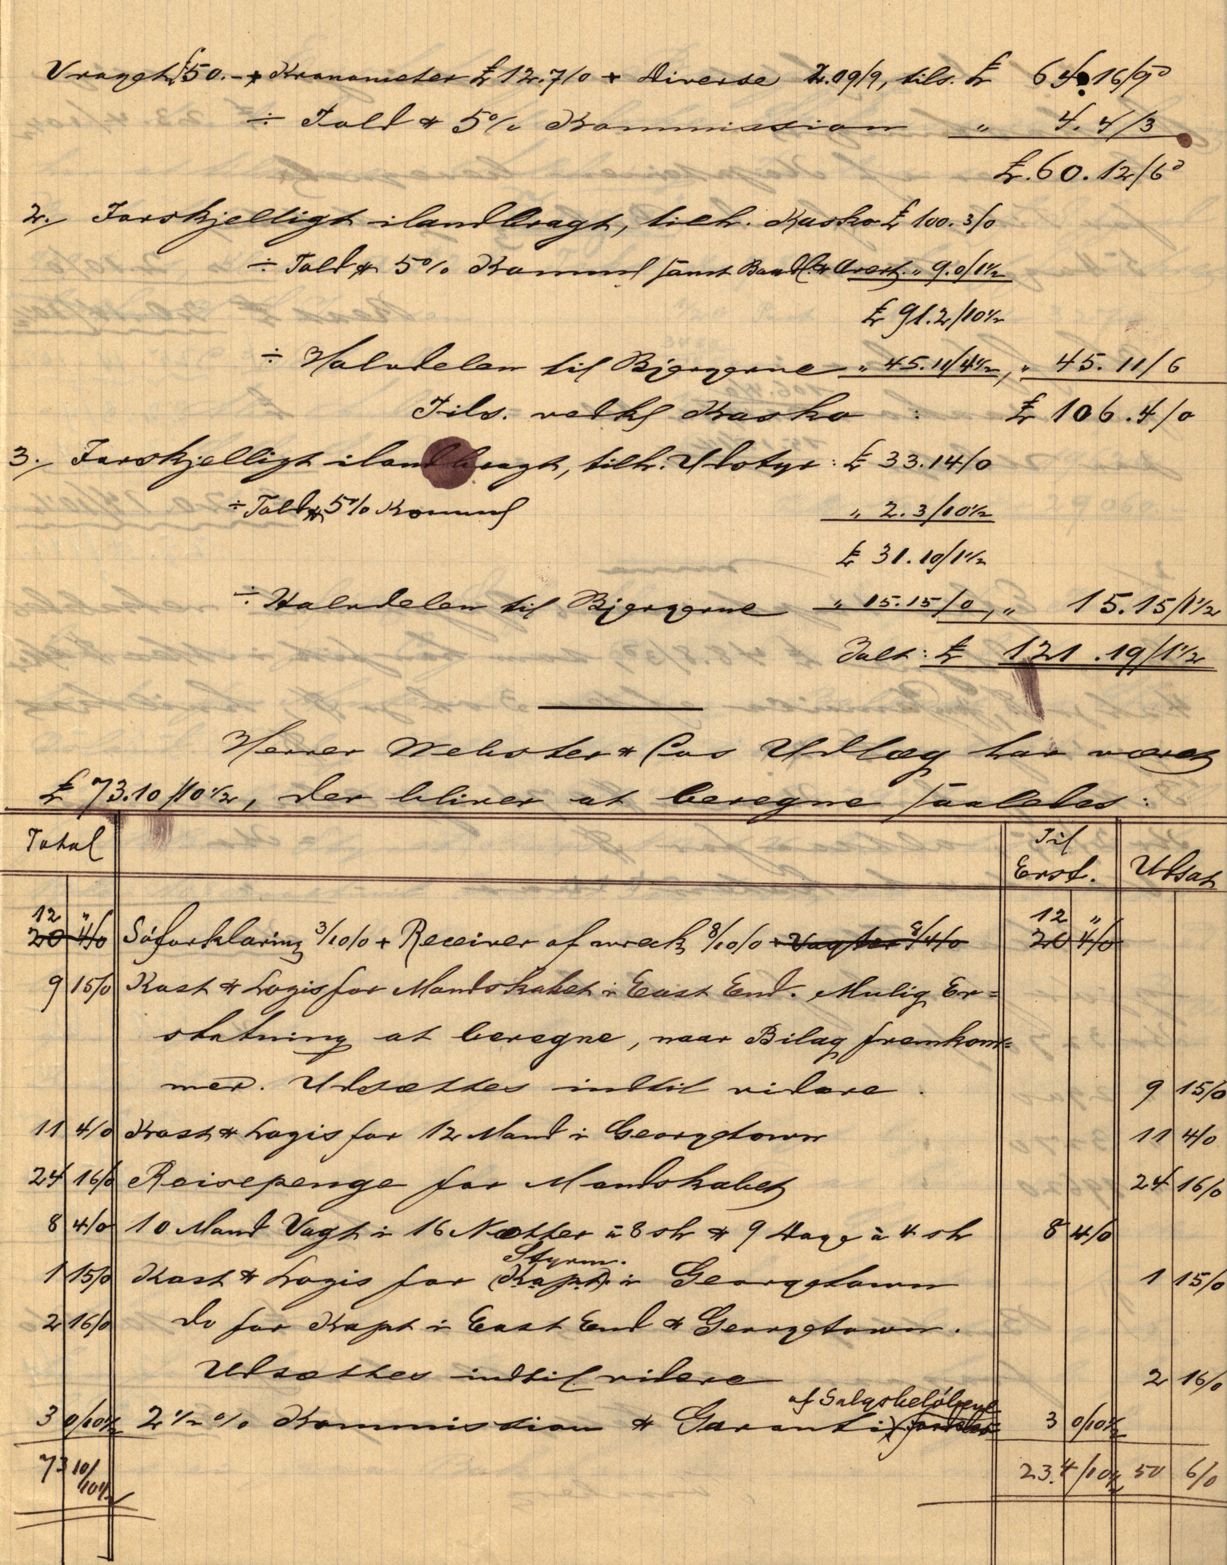 Vraget £50.- + Kronometer £12.7/0 + Diverse 2.09/9, tils. £ 64.16/9
÷ Told & 5% Kommission " 4.4/3
£.60.12/6
2./ Forskjelligt ilandbragt, tilh. Kasko £ 100.3/0
÷ Told & 5% Kommis samt " 9.0/1½
£ 91.2/10½
÷ Halvdelen til Bjergerne " 45.11/4½, " 45.11/6
Tils. vedk Kasko : £ 106.4/0
3./ Forskjelligt ilandbragt, tilh. Udstyr : £ 33.14/0
÷ Told & 5% Kommis " 2.3/10½
£ 31.10/1½
÷ Halvdelen til Bjergerne " 15.15/0, " 15.15/1½
Ialt : £ 121.19/1½
Herrer Webster & Cos Udlæg har været
£ 73.10/10½, der bliver at beregne saaledes :
Total Til Erst. Udsat
12 " 12 "
20 4/0 Söforklaring 3/10/0 + Receiver of wreck 8/10/0 + Vagter 8/4/0 20 4/0
9 15/0 Kost & Logis for Mandskabet i East End. Mulig Er=
statning at beregne, naar Bilag fremkom=
mer. Udsættes indtil videre. 9 15/0
11 4/0 Kost & Logis for 12 Mand i Georgetown 11 4/0
24 16/0 Reisepenge for Mandskabet 24 16/0
8 4/0 10 Mand Vagt i 16 Nætter à 8 sh & 9 Dage à 4 sh 8 4/0
Styrm.
1 15/0 Kost & Logis for (Kapt) i Georgetown 1 15/0
2 16/0 do for Kapt i East End & Georgetown.
Udsættes indtil videre 2 16/0
af Salgsbelöbene
3 0/10½ 2½% Kommission & Garanti 3 0/10½
73 10/10½ 23.4/10½ 50 6/0